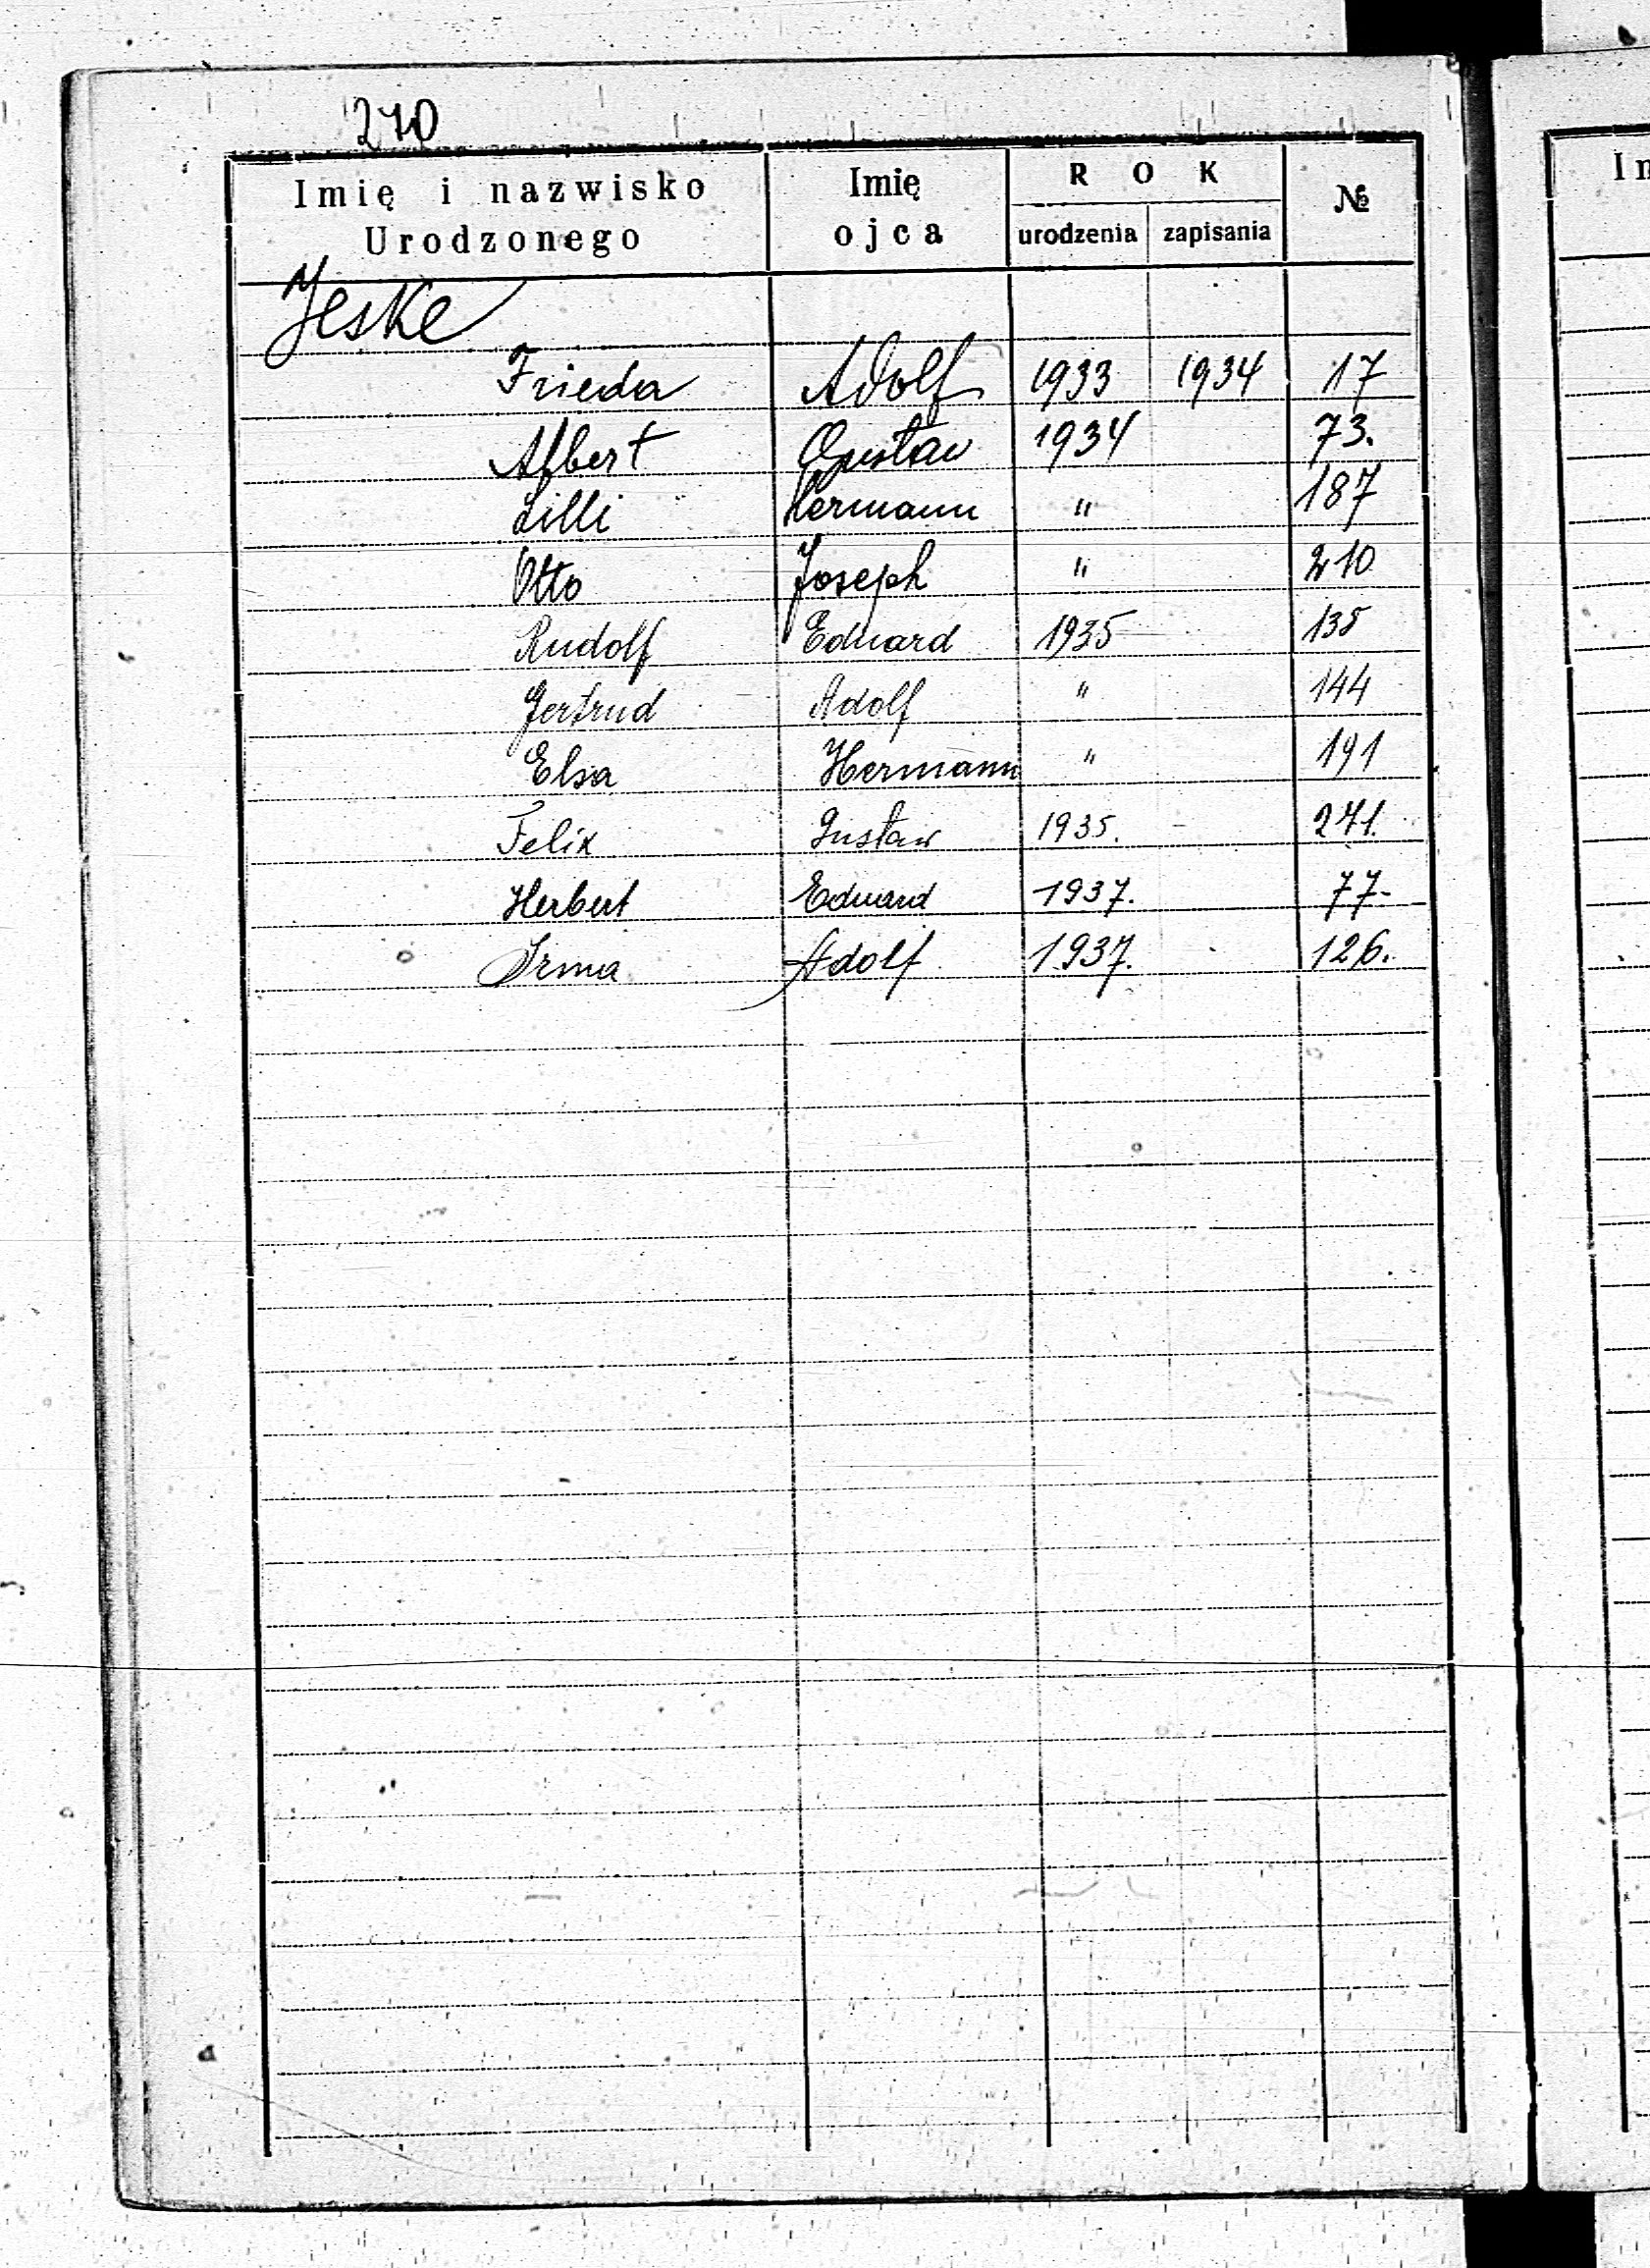 270
Imię i nazwisko Urodzonego Imię ojca ROK urodzenia zapisania №
Jeske
Frieda Adolf 1933 1934 17
Albert Gustav 1934 73.
Lilli Hermann " 187
Otto Joseph " 210
Rudolf Eduard 1935 135
Gertrud Adolf " 144
Elsa Hermann " 191
Felix Gustaw 1935. 271.
Herbert Eduard 1937. 77-
Irma Adolf 1937. 126.